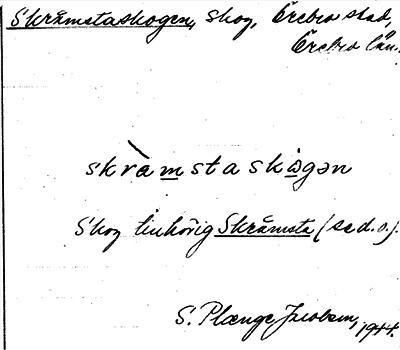 Skråmstaskogen, skog, Örebro stad,
Örebro län.
skràmstaskògən
Skog tillhörig Skråmsta (se d.o.).
S. Plænge Jacobson, 1944.